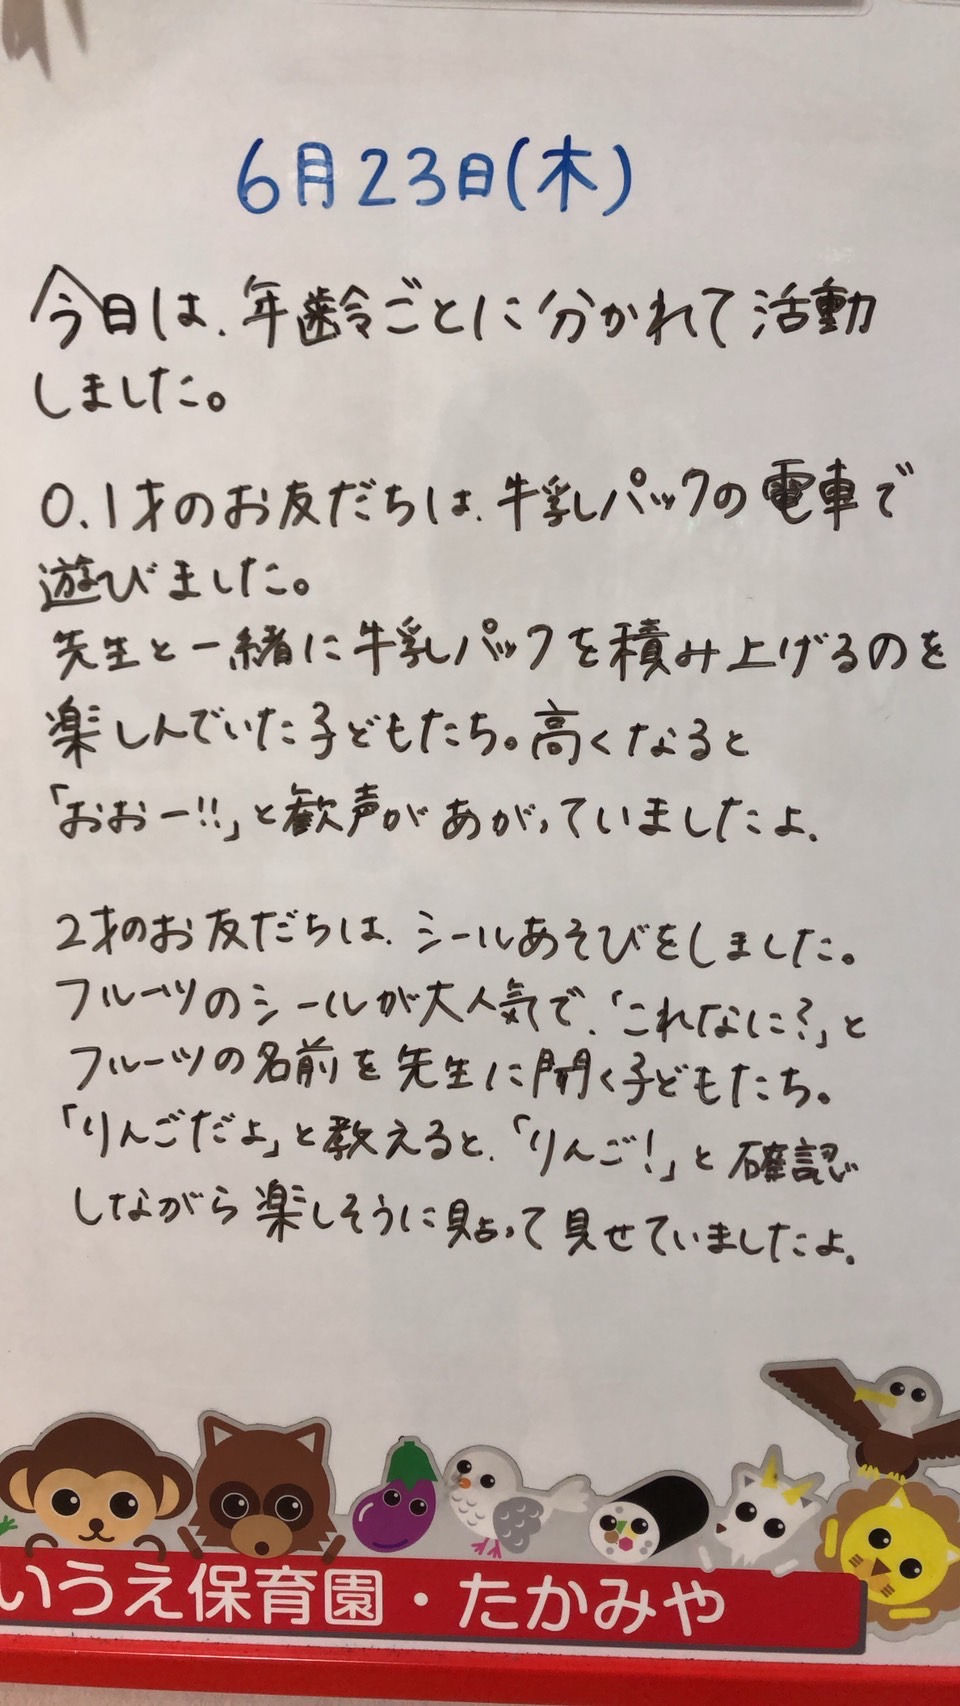 6月23日(木)
今日は、年齢ごとに分かれて活動
しました。
0.1才のお友だちは、牛乳パックの電車で
遊びました。
先生と一緒に牛乳パックを積み上げるのを
楽しんでいた子どもたち。高くなると
「おおー!!」と歓声があがっていましたよ。
2才のお友だちは、シールあそびをしました。
フルーツのシールが大人気で、「これなに?」と
フルーツの名前を先生に聞く子どもたち。
「りんごだよ」と教えると、「りんご!」と確認
しながら楽しそうに貼って見せていましたよ。
いうえ保育園・たかみや